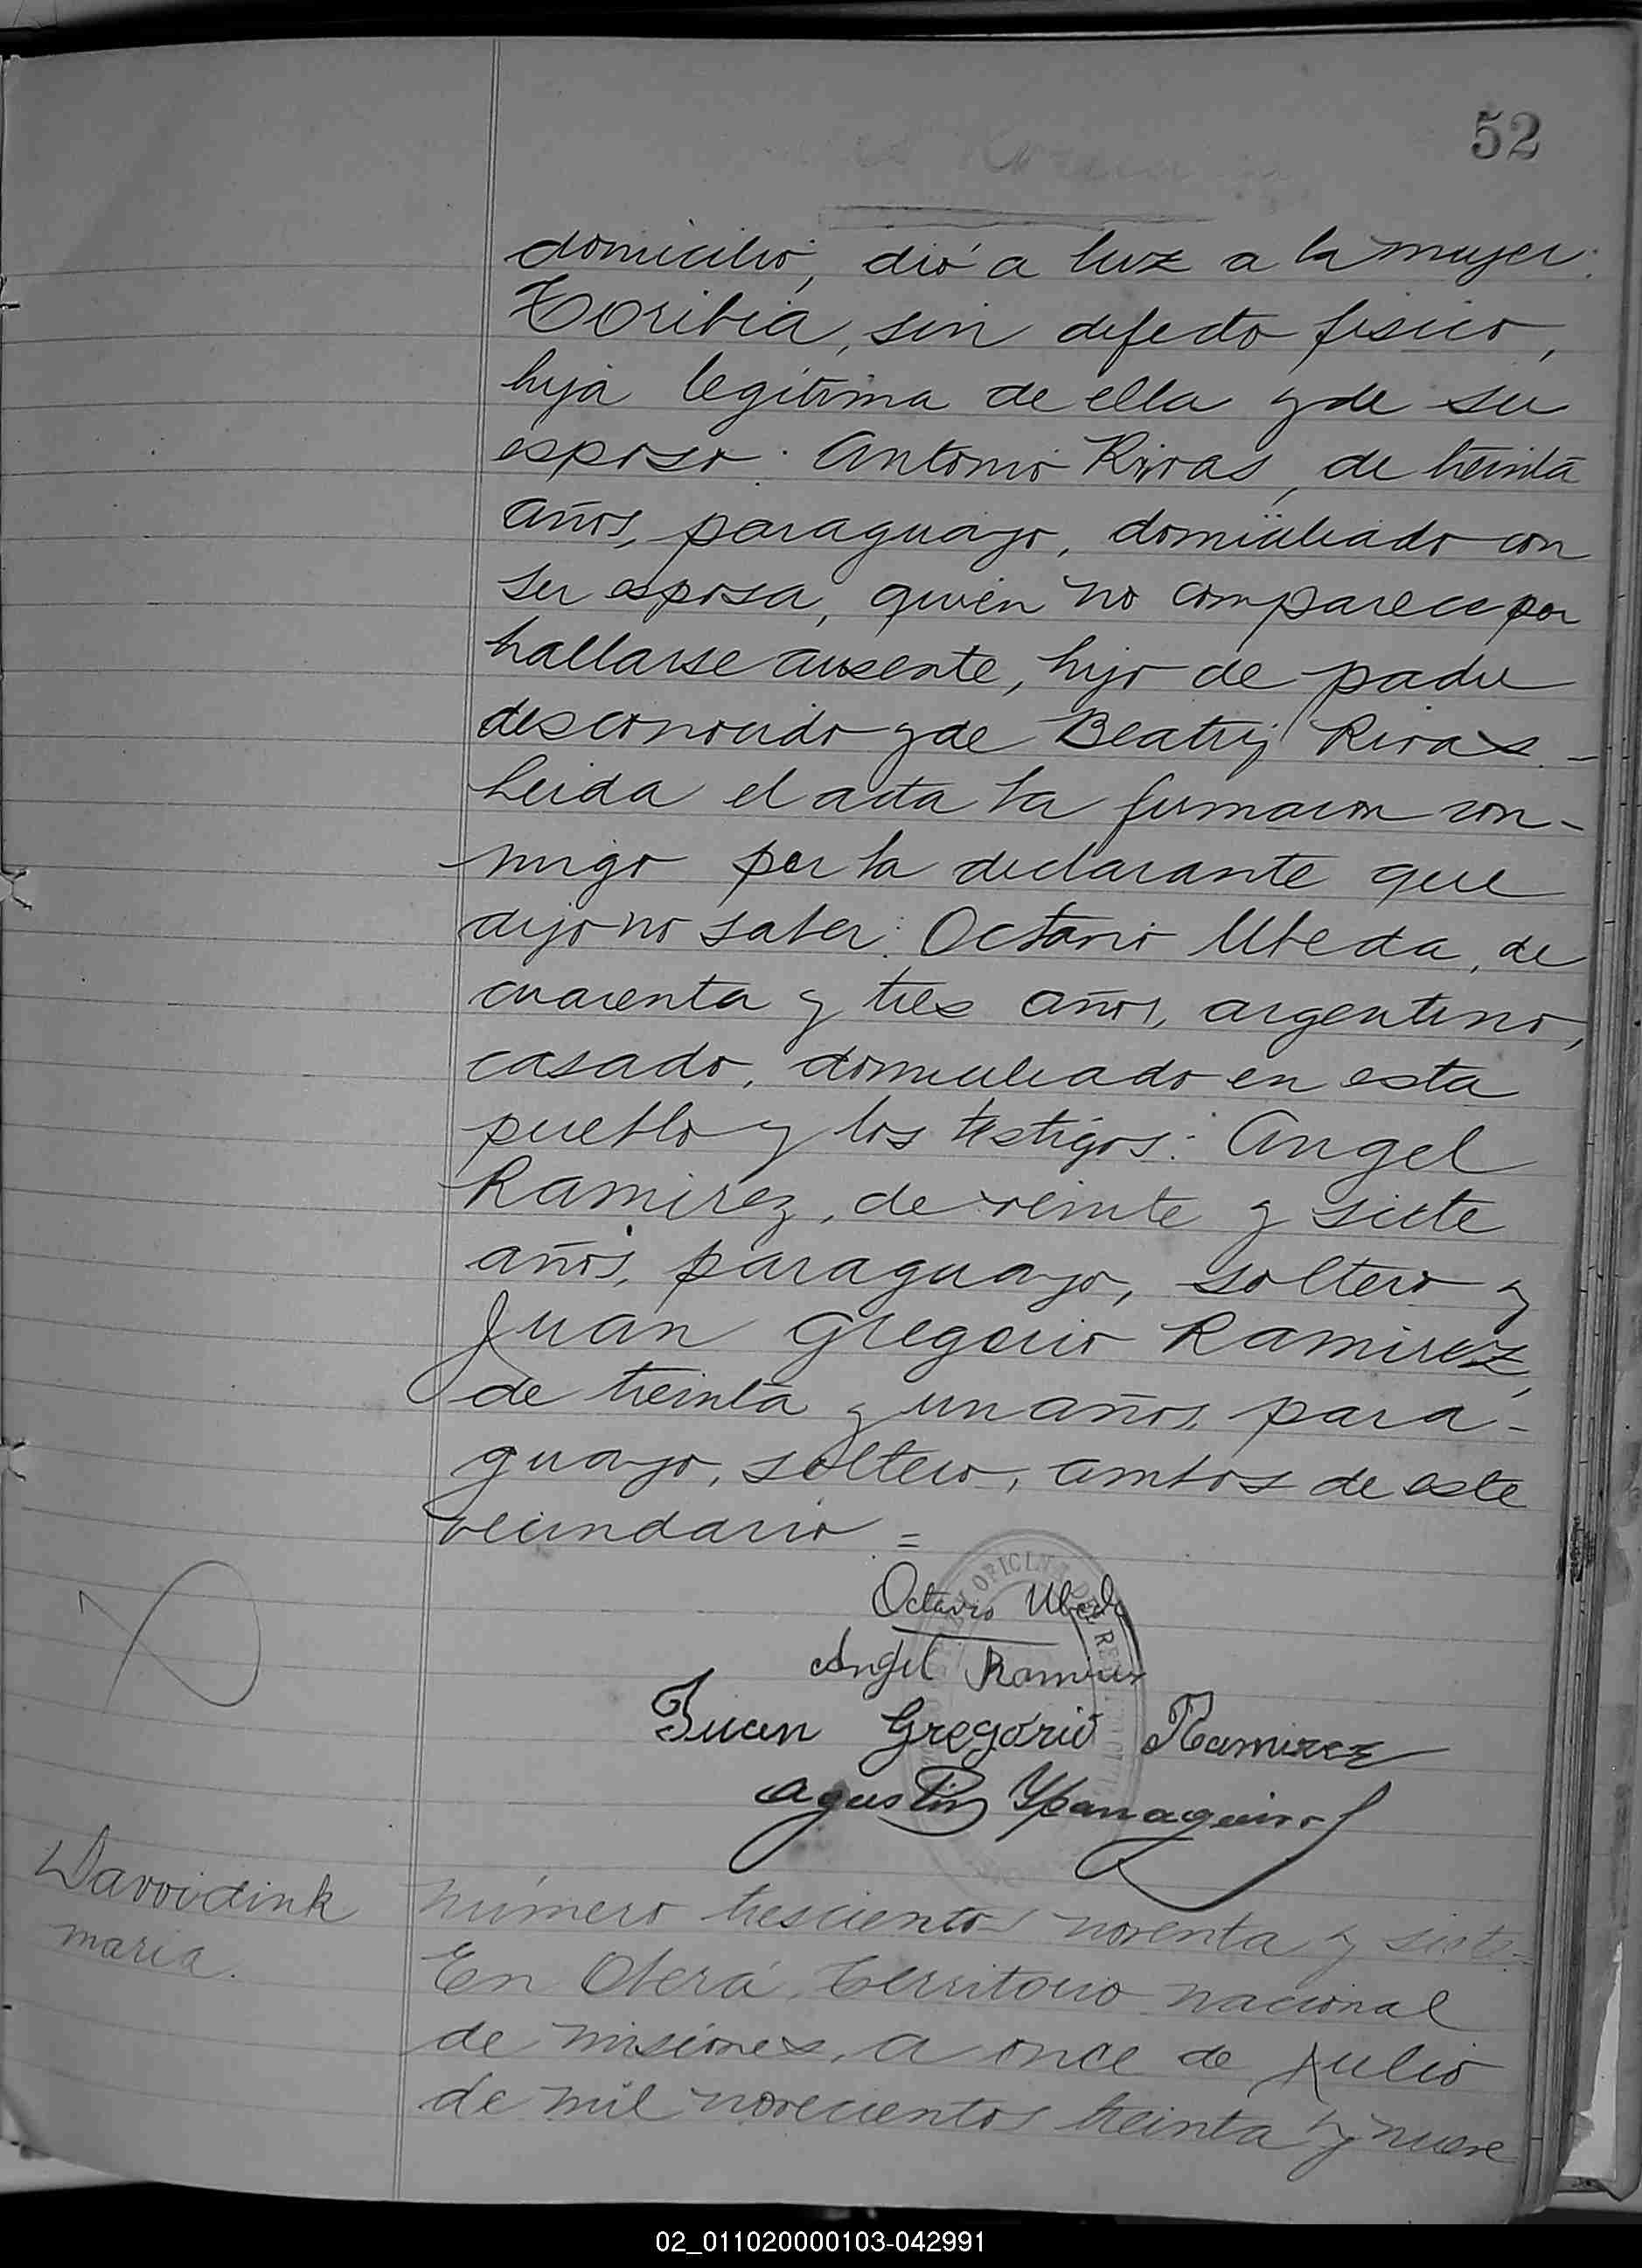 52
domicilio, dió a luz a la mujer:
Toribia, sin defecto fisico,
hija legítima de ella y de su
esposo: Antonio Rivas, de treinta
años, paraguayo, domiciliado con
su esposa, quién no comparece por
hallarse ausente, hijo de padre
desconocido y de Beatriz Rivas.-
Leida el acta la firmaron con-
migo por la declarante que
dijo no saber: Octavio Ubeda, de
cuarenta y tres años, argentino,
casado, domiciliado en esta
pueblo y los testigos: Angel
Ramirez, de veinte y siete
años, paraguayo, soltero y
Juan Gregorio Ramirez,
de treinta y un años, para-
guayo, soltero, ambos de este
vecindario =
OFICINA DEL RE
Octavio Ubeda
Angel Ramirez
Juan Gregorio Ramirez
Agustin
Davvidink
maria.
Número trescientos noventa y siete-
En Oberá, Territorio nacional
de misiones, a once de Julio
de mil novecientos treinta y nueve
02_011020000103-042991